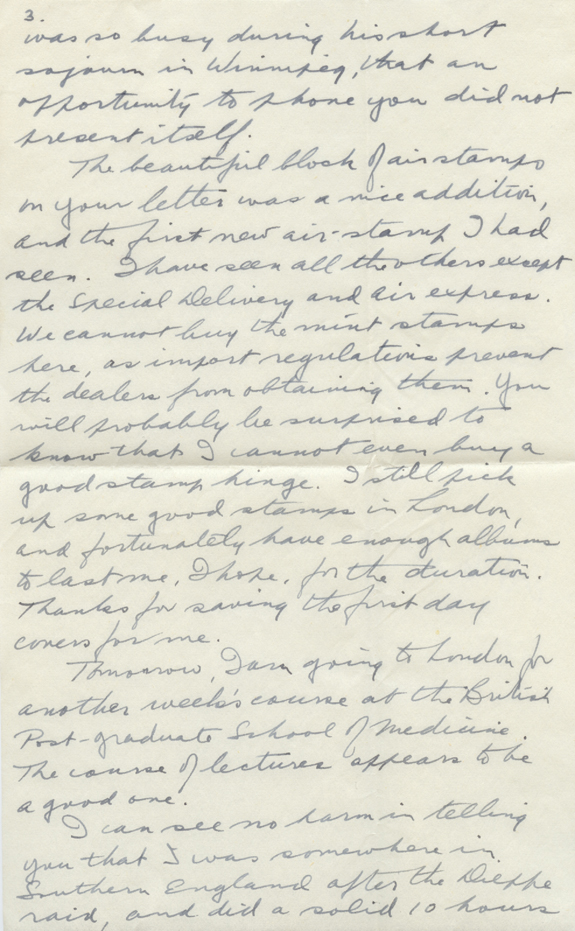 3.
was so busy during his short
sojourn in Winnipeg, that an
opportunity to phone you did not
present itself.
The beautiful block of air stamps
on your letter was a nice addition,
and the first new air-stamp I had
seen. I have seen all the others except
the Special Delivery and air express.
We cannot buy the mint stamps
here, as import regulations prevent
the dealers from obtaining them. You
will probably be surprised to
know that I cannot even buy a
good stamp hinge. I still pick
up some good stamps in London,
and fortunately have enough albums
to last me, I hope, for the duration.
Thanks for saving the first day
covers for me.
Tomorrow, I am going to London for
another week's course at the British
Post-graduate School of Medicine.
The course of lectures appears to be
a good one.
I can see no harm in telling
you that I was somewhere in
Southern England after the Dieppe
raid, and did a solid 10 hours